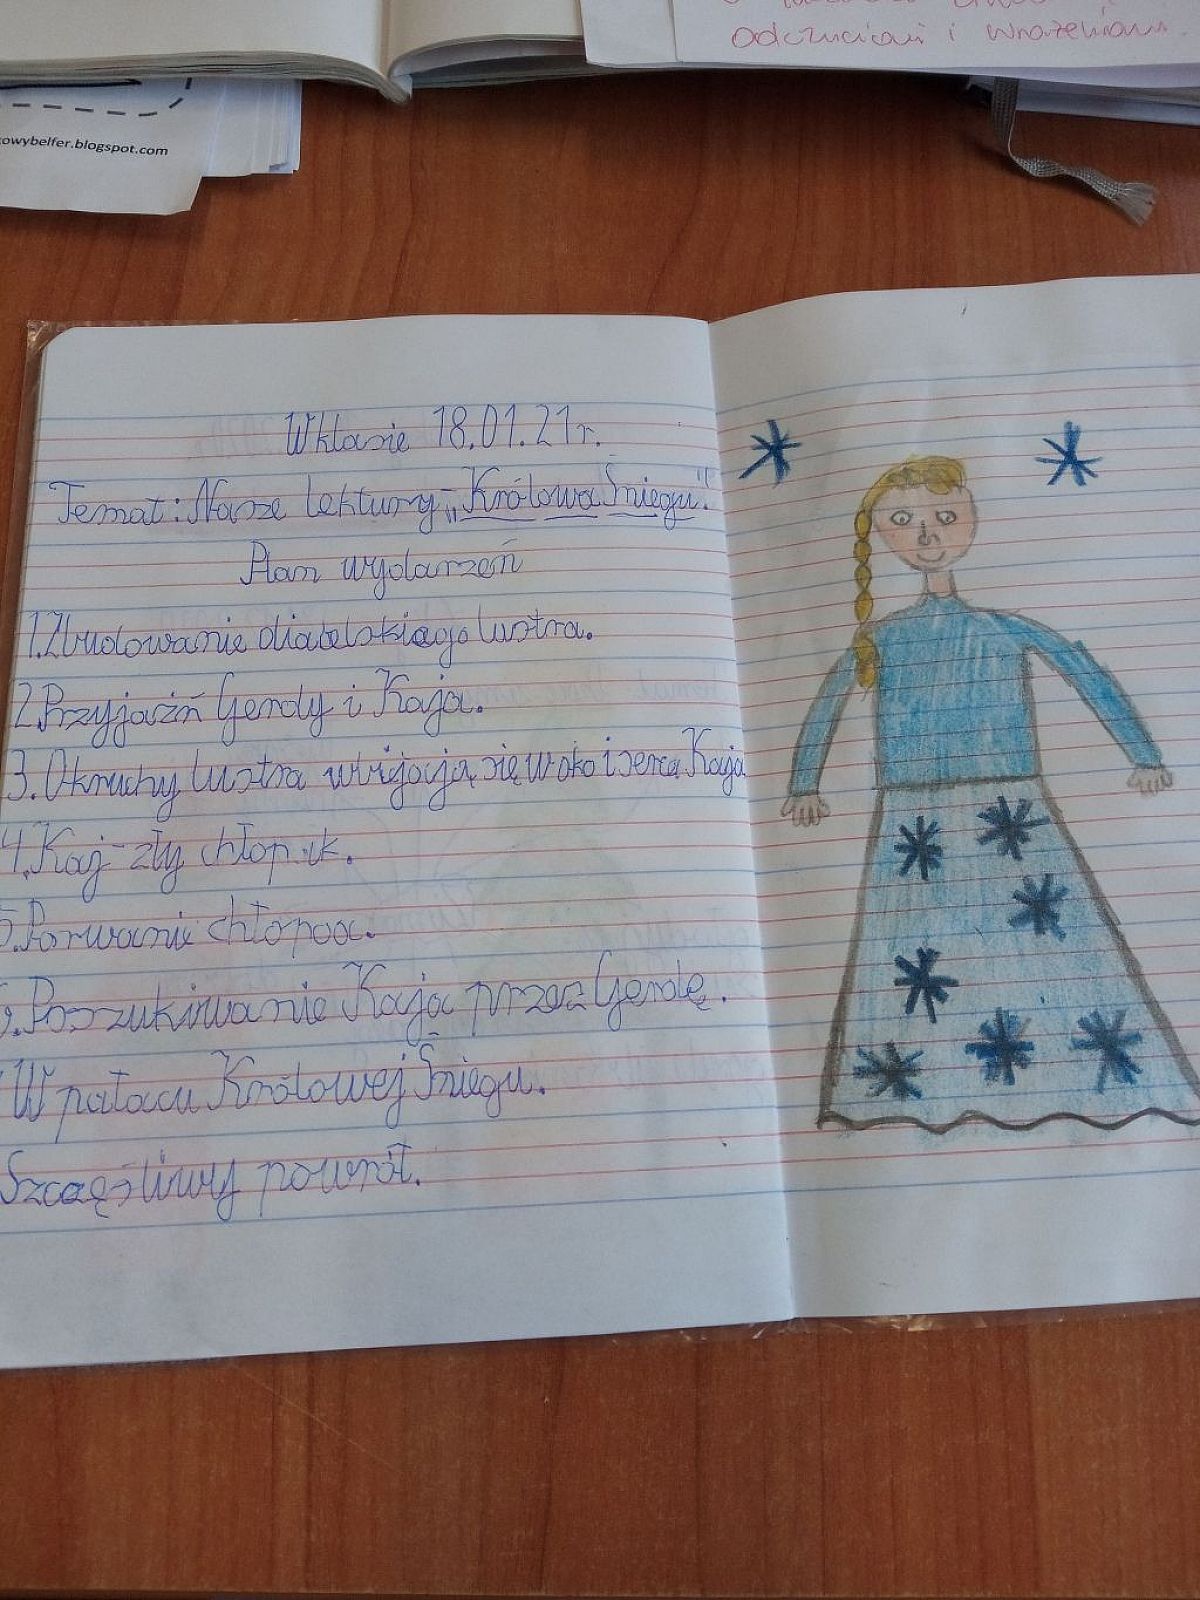 odczuciami i wrażeniami.
owybelfer.blogspot.com
W klasie 18.01.21r.
Temat: Nasze lektury - „Królowa Śniegu".
Plan wydarzeń
1. Zbudowanie diabelskiego lustra.
2. Przyjaźń Gerdy i Kaja.
3. Okruchy lustra wbijają się w oko i serce Kaja
4. Kaj - zły chłopak.
5. Porwanie chłopca.
6. Poszukiwanie Kaja przez Gerdę.
W pałacu Królowej Śniegu.
Szczęśliwy powrót.